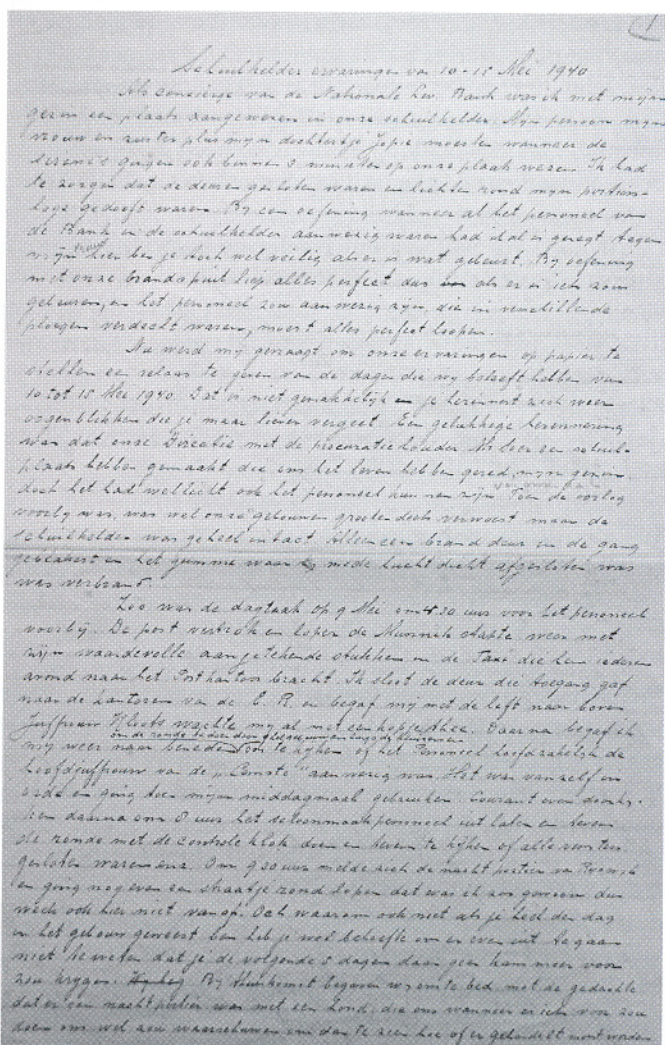 1
Schuilkelder ervaringen van 10-15 Mei 1940
Als conciërge van de Nationale Lev. Bank was ik met mijn
gezin een plaats aangewezen in onze schuilkelder. Mijn persoon mijn
vrouw en zuster plus mijn dochtertje Jopie moesten wanneer de
sirene's gingen ook binnen 3 minuten op onze plaats wezen. Ik had
te zorgen dat de deuren gesloten waren en lichten rond mijn portiers-
loge gedooft waren. By een oefening wanneer al het personeel van
de Bank in de schuilkelder aanwezig waren had ik al is gezegt tegen
mijn vrouw hier ben je toch wel veilig als er is wat gebeurt. By oefening
met onze brandspuit liep alles perfect dus als er is iets zou
gebeuren, en het personeel zou aanwezig zijn, die in verschillende
ploegen verdeelt waren, moest alles perfect loopen.
Nu werd mij gevraagt om onze ervaringen op papier te
stellen een relaas te geven van de dagen die wy beleeft hebben van
10 tot 15 Mei 1940. Dat is niet gemakkelijk en je herinnert zich weer
oogenblikken die je maar liever vergeet. Een gelukkige herinnering
was dat onze Directie met de procuratiehouder een schuil-
plaats hebben gemaakt die ons het leven hebben gered, mijn gezin
doch het had wellicht ook het personeel kunnen zijn. Toen de oorlog
voorby was, was wel onze gebouwen grooten deels verwoest maar de
schuilkelder was geheel intact. Alleen een brand deur in de gang
en het gummie waar mede lucht dicht afgesloten was
was verbrant.
Zoo was de dagtaak op 9 Mei om 5.30 uur voor het personeel
voorbij. De post vertrok en loper de Munnik stapte weer met
zijn waardevolle aangetekende stukken in de Taxi die hem iederen
avond naar het Postkantoor bracht. Ik sloot de deur die toegang gaf
naar de kantoren van de C. R. en begaf mij met de lift naar boven
Juffrouw Kloots wachtte mij al met een kopje thee. Daarna begaf ik
mij weer naar beneden om te kijken of het Personeel hoofdzakelijk de
hoofdjuffrouw van de aanwezig was. Het was van zelf in
orde en ging toen mijn middagmaal gebruiken. Courant even
ken daarna om 8 uur het schoonmaakpersoneel uit laten en tevens
de ronde met de controle klok doen en tevens te kijken of alle
gesloten waren enz. Om 9.30 uur melde zich de nacht portier
en ging nog even een straatje rond lopen dat was ik zoo gewoon dus
week ook hier niet van af. Och waarom ook niet als je heel den dag
in het gebouw geweest ben heb je wel behoefte om er even uit te gaan
niet te weten dat je de volgende 5 dagen daar geen kans meer voor
zou krygen. By thuiskomst begaven wy ons te bed met de gedachte
dat er een nachtportier was met een hond, die ons wanneer er iets voor zou
doen ons wel zou waarschuwen om dan te zien hoe of er gehandelt moet worden